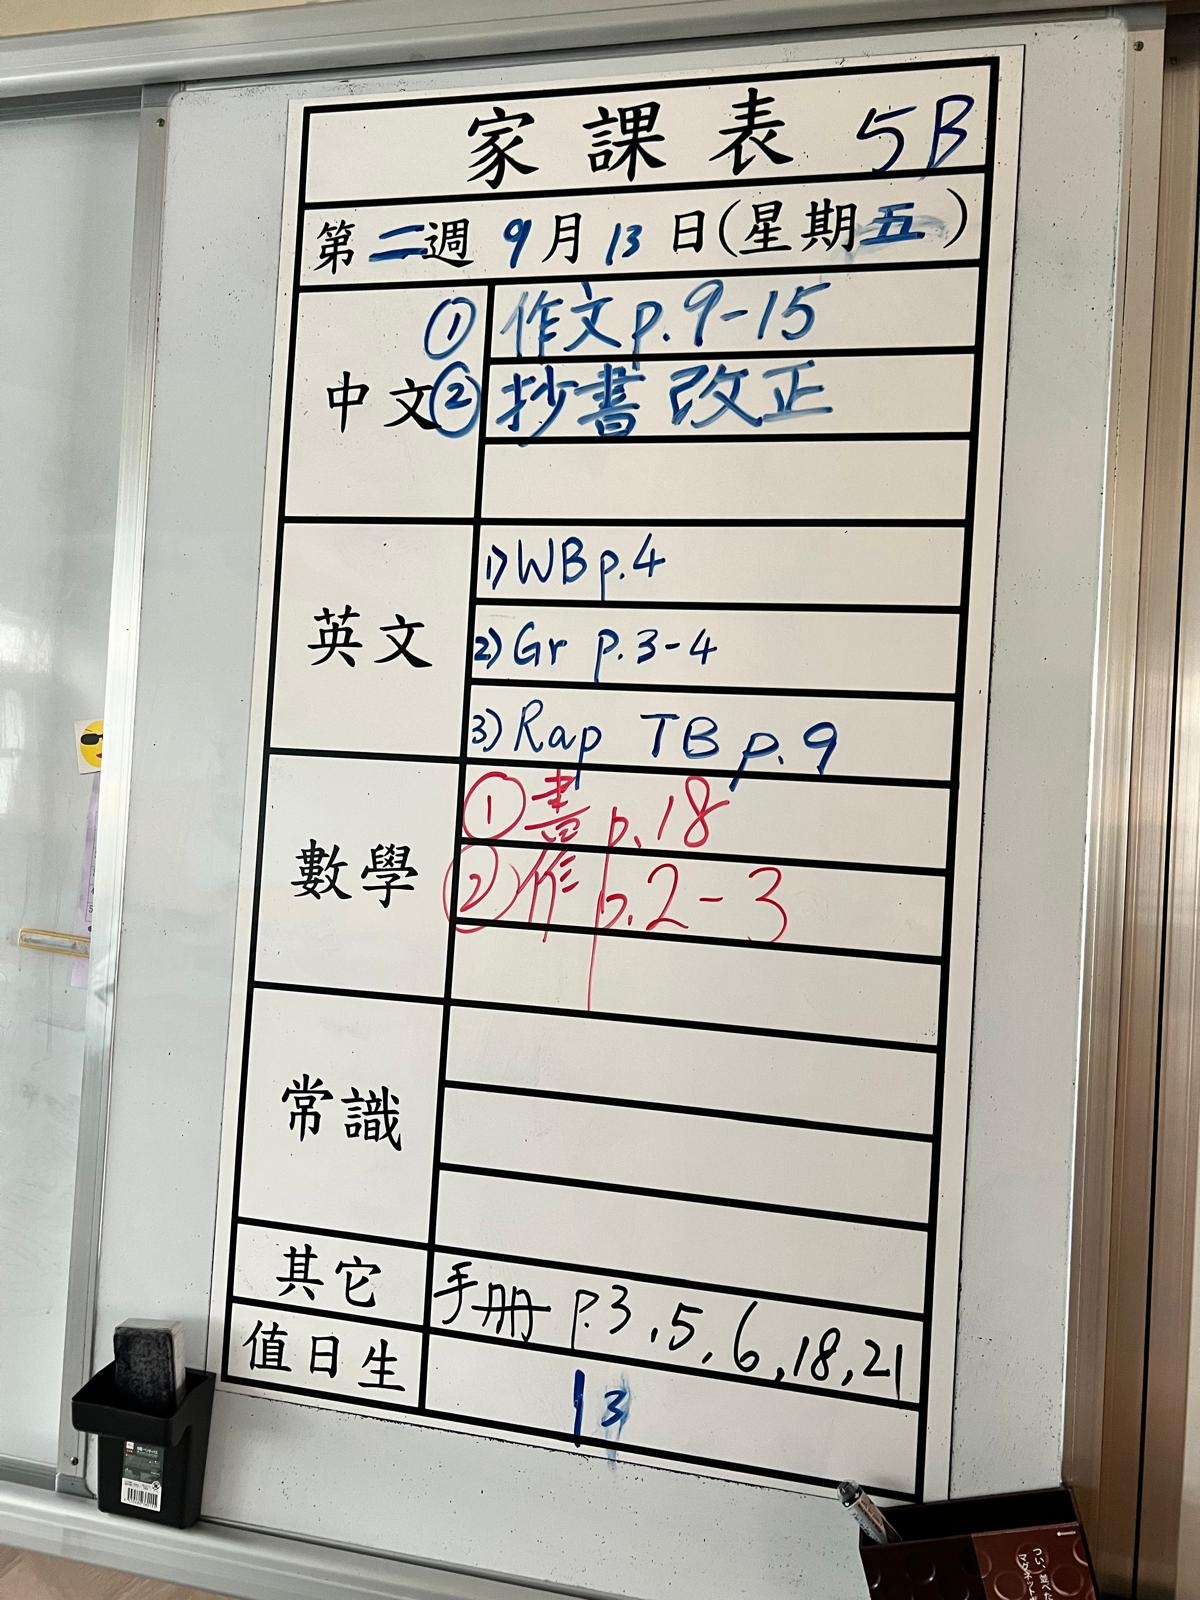 家課表 5B
第二週 9月13日(星期五)
中文
① 作文p.9-15
② 抄書 改正
英文
1) WB p.4
2) Gr p.3-4
3) Rap TB p.9
數學
① 書 p.18
② 作 p.2-3
常識
其它
手冊 p.3,5,6,18,21
值日生
13
つい、並べた
マグネット